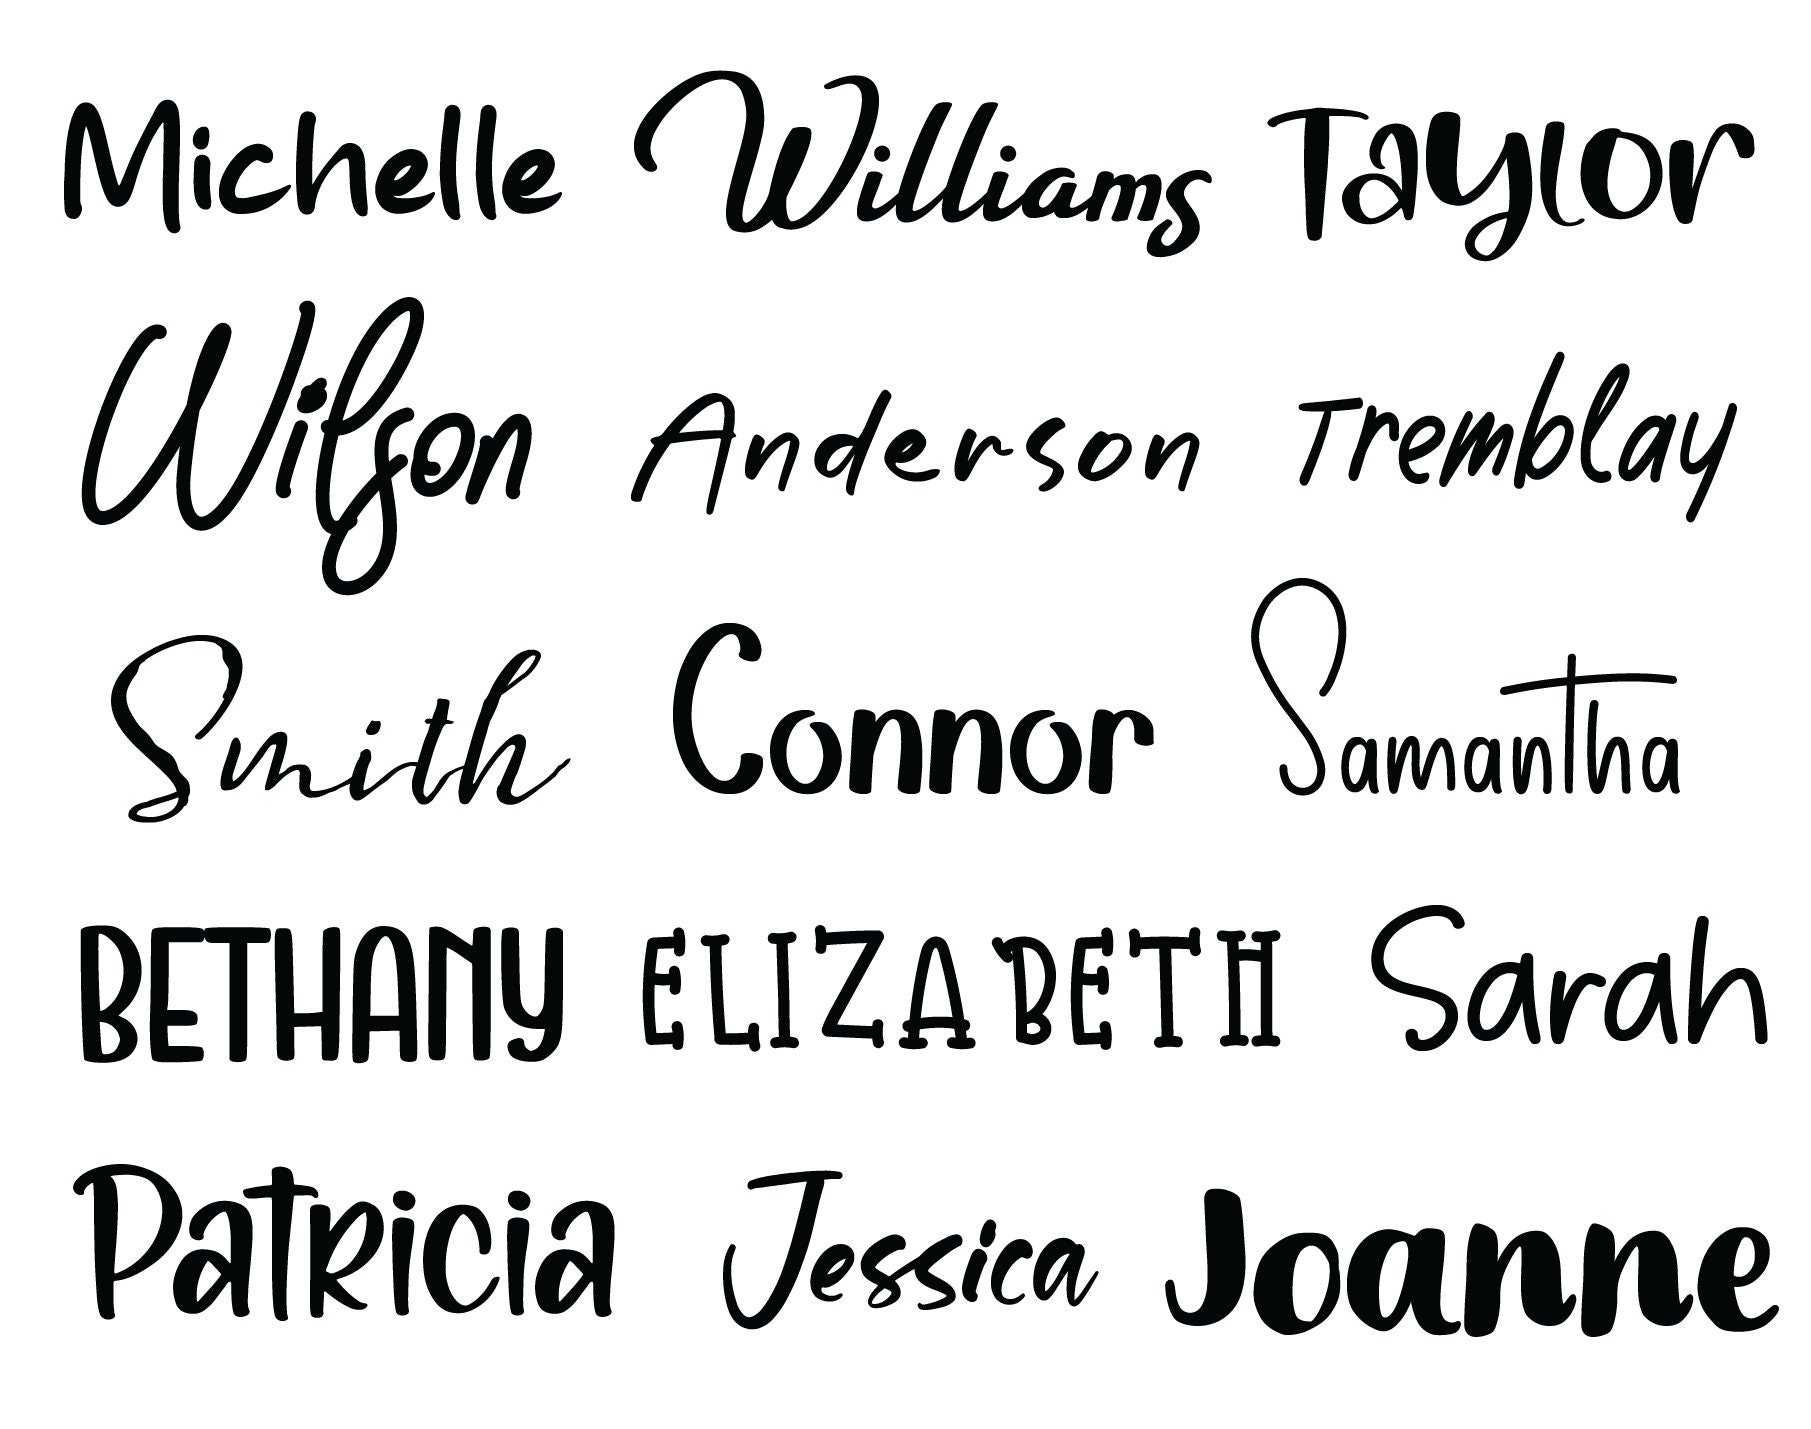 Michelle Williams Taylor
Wilson Anderson Tremblay
Smith Connor Samantha
BETHANY ELIZABETH Sarah
Patricia Jessica Joanne